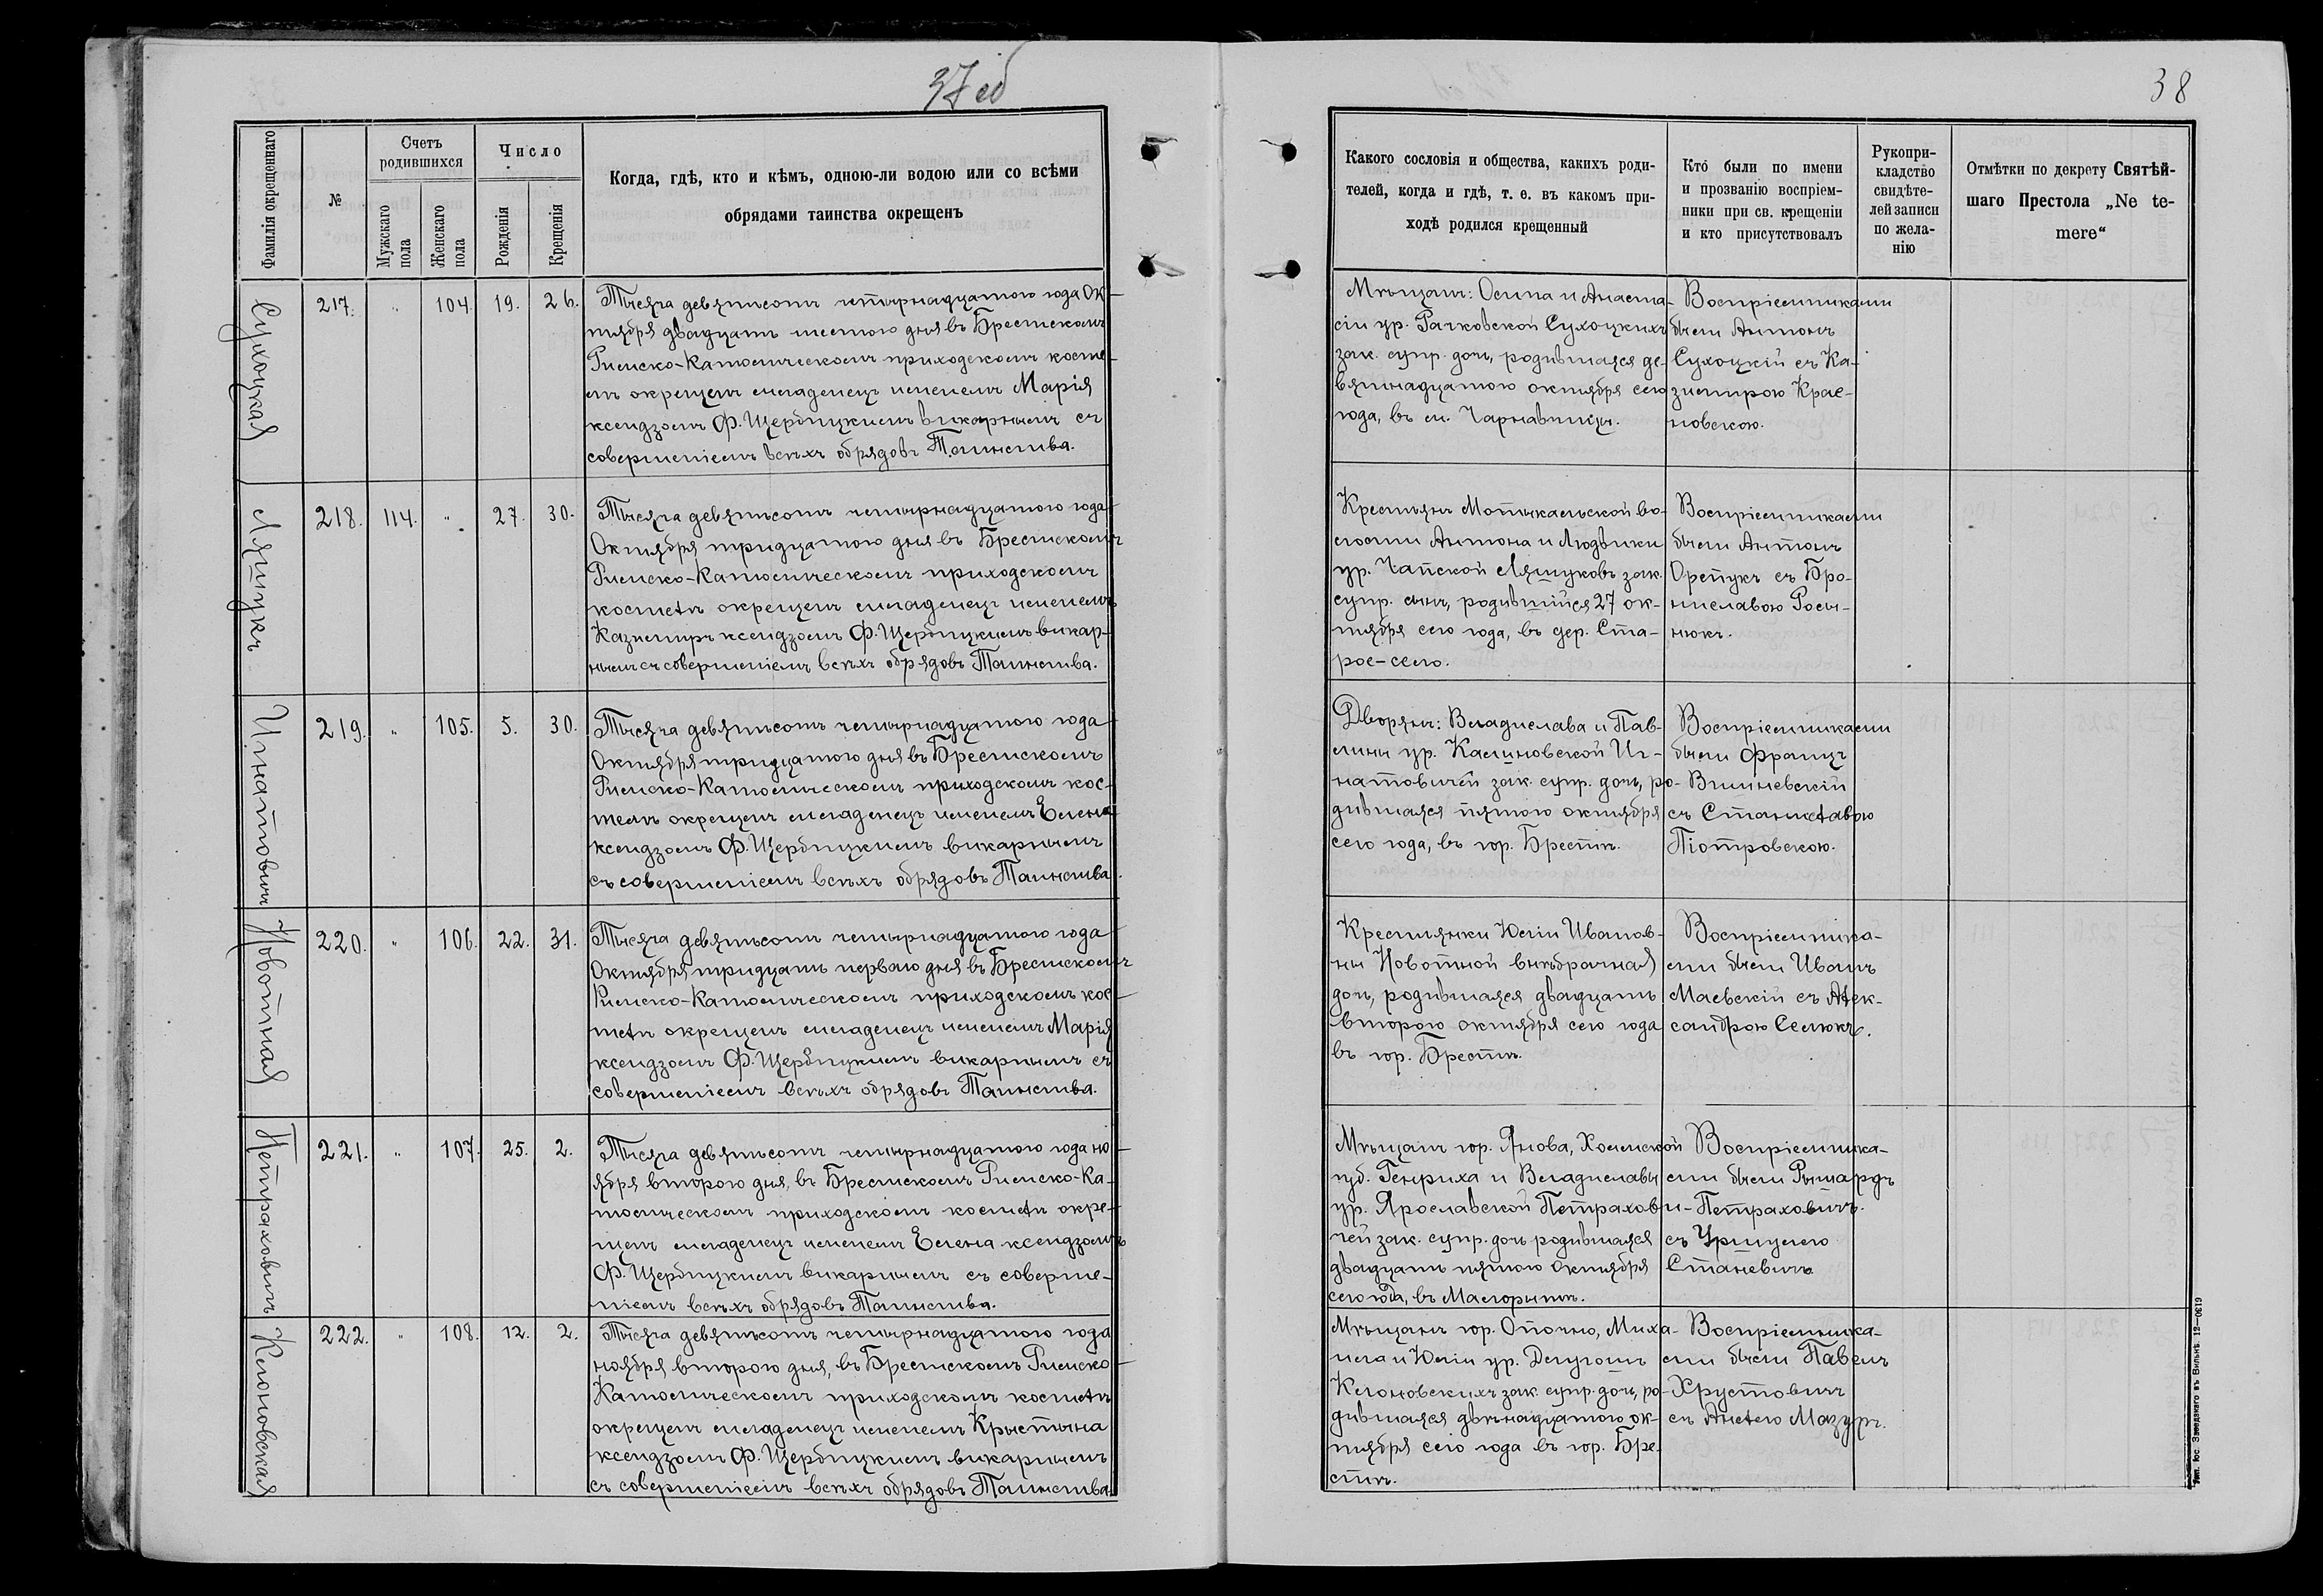 37 об
Фамилія окрещеннаго
№
Счетъ
родившихся
Мужскаго
пола
Женскаго
пола
Число
Рожденія
Крещенія
Когда, гдѣ, кто и кѣмъ, одною-ли водою или со всѣми
обрядами таинства окрещенъ
Сухоцкая
217. " 104. 19. 26.
Тысяча девятьсотъ четырнадцатого года Ок-
тября двадцать шестого дня въ Брестскомъ
Римско-Католическомъ приходскомъ косте-
лѣ окрещенъ младенецъ именемъ Марія
ксендзомъ Ф. Щербицкимъ викарнымъ съ
совершеніемъ всѣхъ обрядовъ Таинства.
Ляшукъ
218. 114. " 27. 30.
Тысяча девятьсотъ четырнадцатого года
Октября тридцатого дня въ Брестскомъ
Римско-Католическомъ приходскомъ
костелѣ окрещенъ младенецъ именемъ
Казимиръ ксендзомъ Ф. Щербицкимъ викар-
нымъ съ совершеніемъ всѣхъ обрядовъ Таинства.
Игнатовичъ
219. " 105. 5. 30.
Тысяча девятьсотъ четырнадцатого года
Октября тридцатого дня въ Брестскомъ
Римско-Католическомъ приходскомъ кос-
телѣ окрещенъ младенецъ именемъ Елена
ксендзомъ Ф. Щербицкимъ викарнымъ
съ совершеніемъ всѣхъ обрядовъ Таинства.
Новотная
220. " 106. 22. 31.
Тысяча девятьсотъ четырнадцатого года
Октября тридцать перваго дня въ Брестскомъ
Римско-Католическомъ приходскомъ кос-
телѣ окрещенъ младенецъ именемъ Марія
ксендзомъ Ф. Щербицкимъ викарнымъ съ
совершеніемъ всѣхъ обрядовъ Таинства.
Петраховичъ
221. " 107. 25. 2.
Тысяча девятьсотъ четырнадцатого года но-
ября второго дня, въ Брестскомъ Римско-Ка-
толическомъ приходскомъ костелѣ окре-
щенъ младенецъ именемъ Елена ксендзомъ
Ф. Щербицкимъ викарнымъ съ соверше-
ніемъ всѣхъ обрядовъ Таинства.
Клоновская
222. " 108. 12. 2.
Тысяча девятьсотъ четырнадцатого года
ноября второго дня, въ Брестскомъ Римско-
Католическомъ приходскомъ костелѣ
окрещенъ младенецъ именемъ Крыстына
ксендзомъ Ф. Щербицкимъ викарнымъ
съ совершеніемъ всѣхъ обрядовъ Таинства.
38
Какого сословія и общества, какихъ роди-
телей, когда и гдѣ, т. е. въ какомъ при-
ходѣ родился крещенный
Кто были по имени
и прозванію воспріем-
ники при св. крещеніи
и кто присутствовалъ
Рукопри-
кладство
свидѣте-
лей записи
по жела-
нію
Отмѣтки по декрету Святѣй-
шаго Престола „Ne te-
mere“
Мѣщанъ: Осипа и Анаста-
сіи ур. Рачковской Сухоцкихъ
зак. супр. дочь, родившаяся де-
вятнадцатого октября сего
года, въ м. Чарнавчицы.
Воспріемниками
были Антонъ
Сухоцкій съ Ка-
зимирою Крас-
новскою.
Крестьянъ Мотыкальской во-
лости Антона и Людвики
ур. Чапской Ляшуковъ зак.
супр. сынъ, родившійся 27 ок-
тября сего года, въ дер. Ста-
рое-село.
Воспріемниками
были Антонъ
Орепукъ съ Бро-
ниславою Росы-
нюкъ.
Дворянъ: Владислава и Пав-
лины ур. Калиновской Иг-
натовичей зак. супр. дочь, ро-
дившаяся пятого октября
сего года, въ гор. Брестѣ.
Воспріемниками
были Францъ
Вишневскій
съ Станиславою
Піотровскою.
Крестьянки Юліи Иванов-
ны Новотной внѣбрачная
дочь, родившаяся двадцать
второго октября сего года
въ гор. Брестѣ.
Воспріемника-
ми были Иванъ
Маевскій съ Алек-
сандрою Селюкъ.
Мѣщанъ гор. Янова, Холмской
губ. Генриха и Владиславы
ур. Ярославской Петрахови-
чей зак. супр. дочь родившаяся
двадцать пятого Октября
сего года, въ Малорытѣ.
Воспріемника-
ми были Рышардъ
Петраховичъ.
съ Уршулею
Станевичъ
Мѣщанъ гор. Опочно, Миха-
ила и Юліи ур. Длугошъ
Клоновскихъ зак. супр. дочь, ро-
дившаяся двѣнадцатого ок-
тября сего года въ гор. Бре-
стѣ.
Воспріемника-
ми были Павелъ
Хрустовичъ
съ Анелею Мазуръ.
Тип. Іос. Завадзкаго въ Вильнѣ. 12—0619